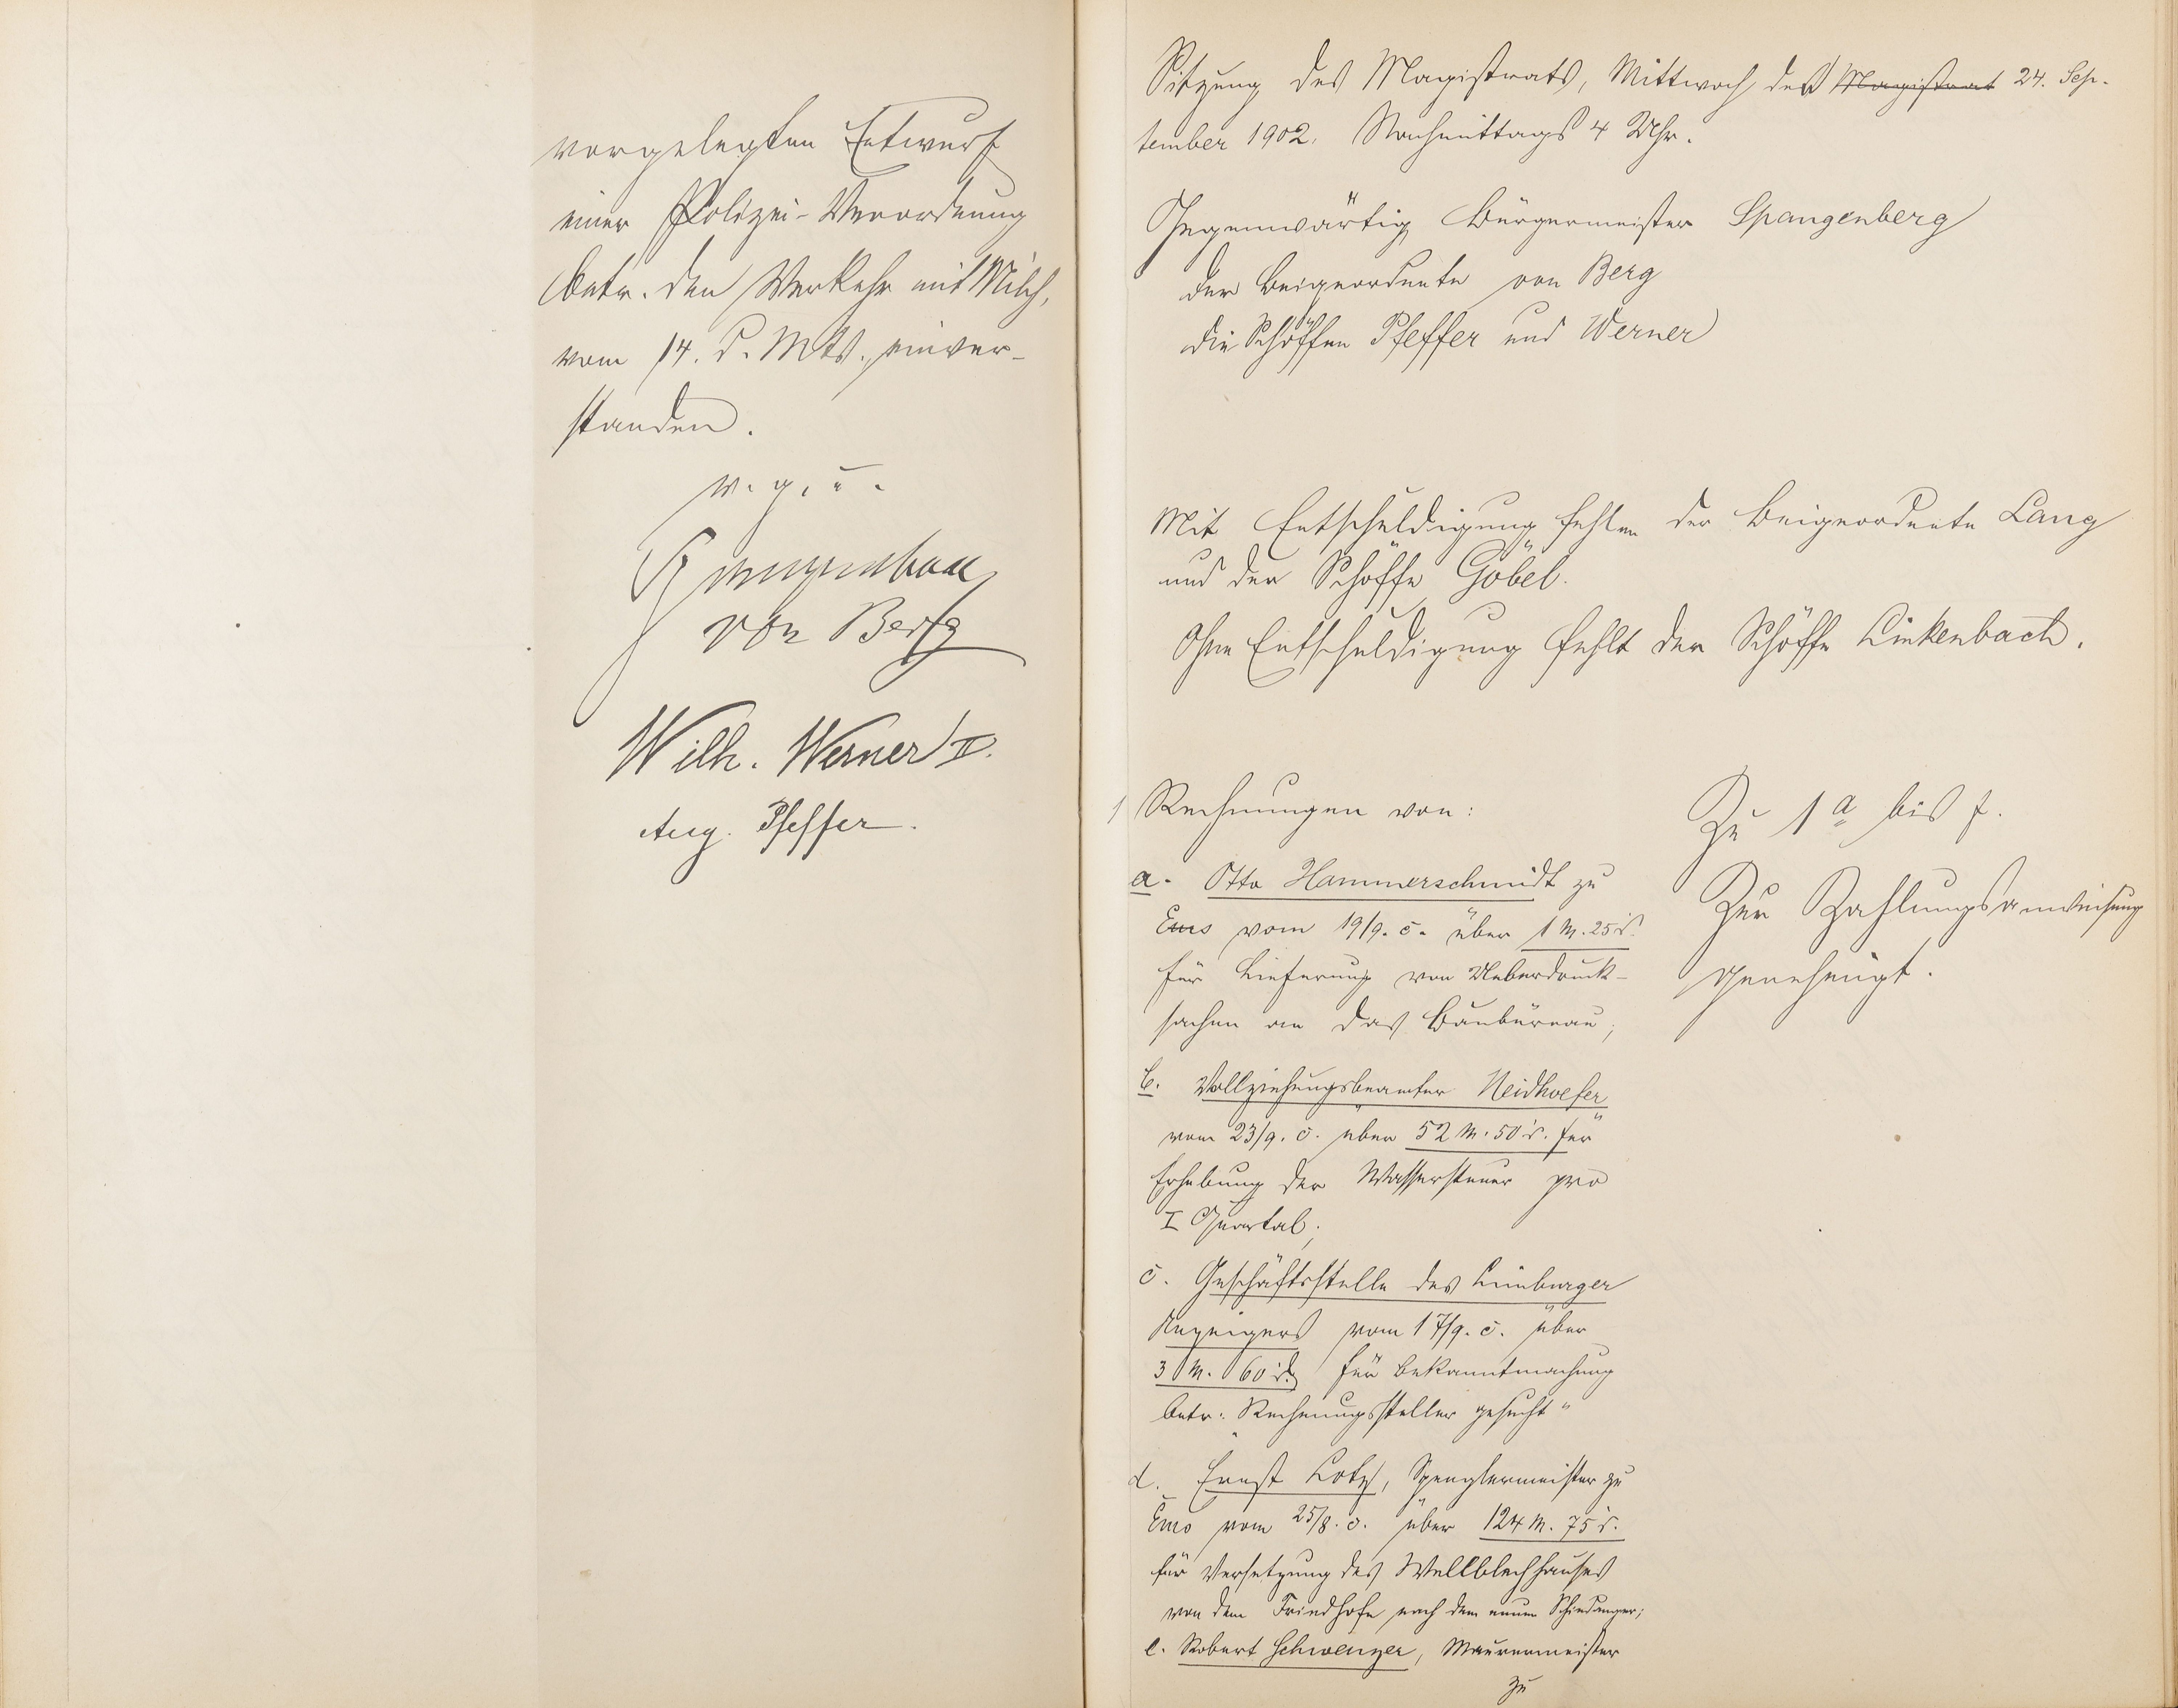 vorgelegten Entwurf
einer Polizei-Verordnung
betr. den Verkehr mit Milch,
vom 14. d. Mts., einver-
standen.
v. g. u.
Spangenberg
von Berg
Wilh. Werner II.
Aug. Pfeffer.
Sitzung des Magistrats, Mittwoch des Magistrat 24. Sep-
tember 1902. Nachmittags 4 Uhr.
Gegenwärtig Bürgermeister Spangenberg
der Beigeordnete von Berg
die Schöffen Pfeffer und Werner
Mit Entschuldigung fehlen der Beigeordnete Lang
und der Schöffe Göbel.
Ohne Entschuldigung fehlt der Schöffe Linkenbach.
1 Rechnungen von:
a. Otto Hammerschmidt zu
Ems vom 19/9. c. über 1 M. 25 d.
für Lieferung von Ueberdruck-
sachen an das Baubüreau;
b. Vollziehungsbeamter Neidhoefer
vom 23/9. c. über 52 M. 50 d. für
Erhebung der Wassersteuer pro
I Quartal;
c. Geschäftsstelle des Limburger
Anzeigers vom 17/9. c. über
3 M. 60 d. für Bekanntmachung
betr. "Rechnungssteller gesucht"
d. Ernst Lotz, Spenglermeister zu
Ems vom 25/8. c. über 124 M. 75 d.
für Versetzung des Wellblechhauses
von dem Friedhofe nach dem neuen Schindanger;
e. Robert Schwenzer, Maurermeister
zu
Zu 1 a bis f.
Zur Zahlungsanweisung
genehmigt.